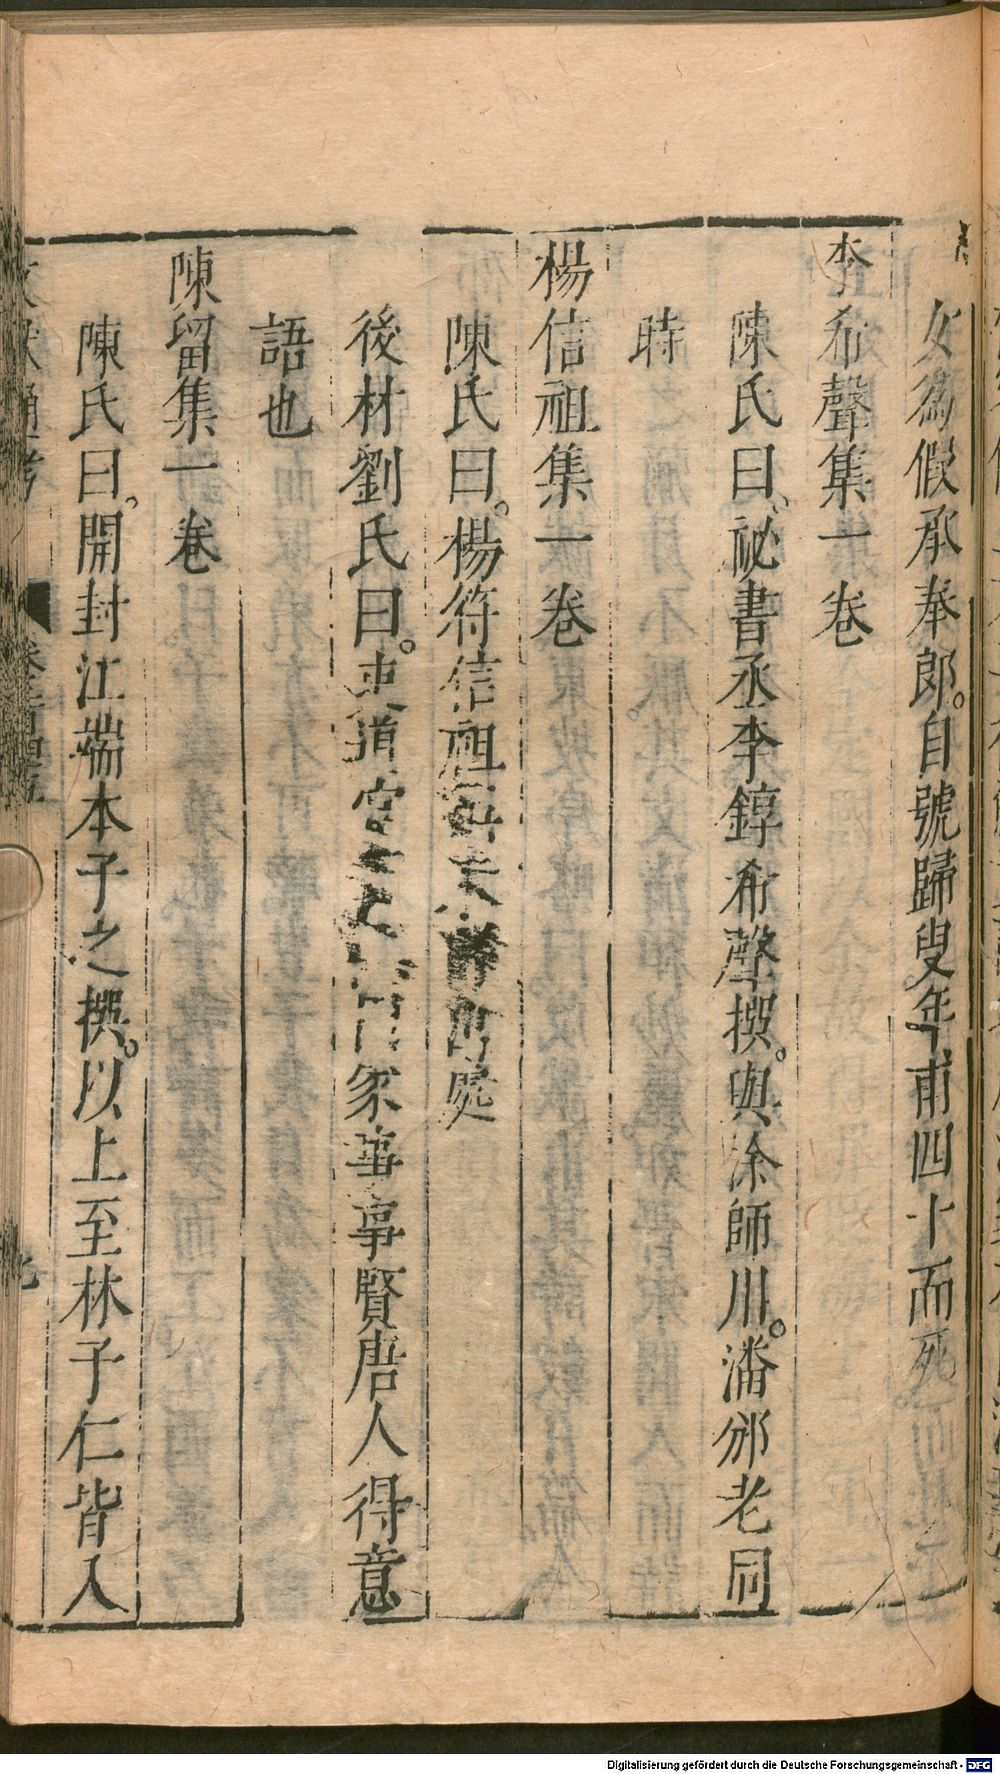 女為假承奉郎。自號歸叟年甫四十而死
李希聲集一卷
陳氏曰、祕書丞李錞希聲撰。與徐師川。潘邠老同
時
楊信祖集一卷
陳氏曰。楊符信祖
處
後林劉氏曰。
家事事賢唐人得意
語也
陳留集一卷
陳氏曰。開封江端本子之撰。以上至林子仁皆入
Digitalisierung gefördert durch die Deutsche Forschungsgemeinschaft - DFG